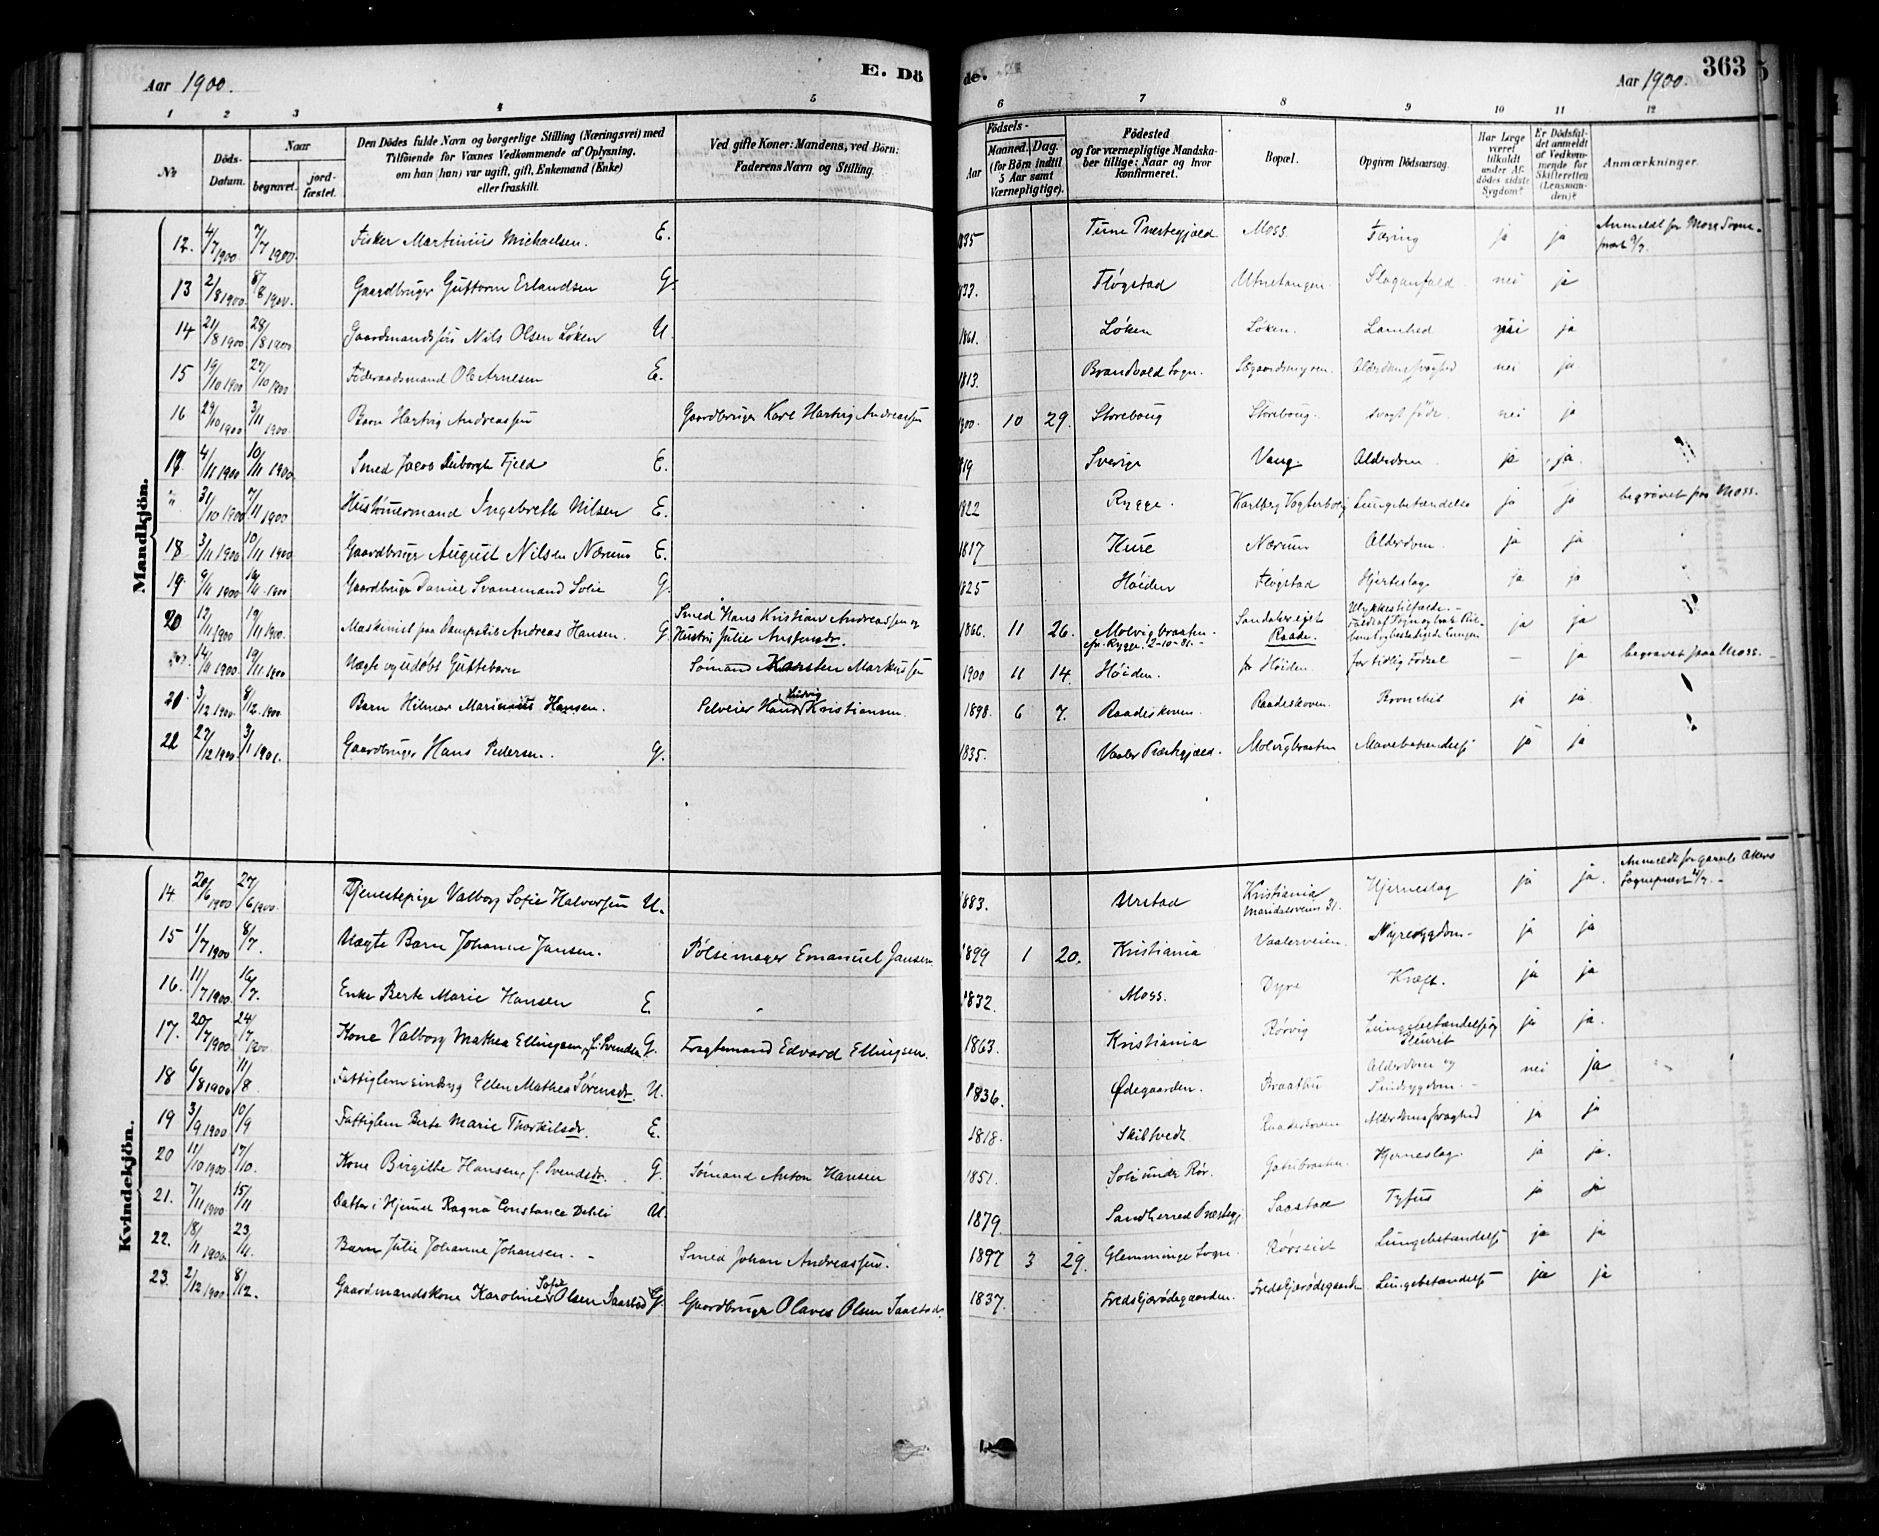 Aar 1900. E. Dö
de. Aar 1900. 363
1 2 3 4 5
6 7 8 9 10 11 12
No
Döds-Datum.
Naar
begravet.
jord-fæstet.
Den Dödes fulde Navn og borgerlige Stilling (Næringsvei) med
Tilföiende for Voxnes Vedkommende af Oplysning,
om han (hun) var ugift, gift, Enkemand (Enke)
eller fraskilt.
Ved gifte Koner: Mandens, ved Börn:
Faderens Navn og Stilling.
Födsels-
Aar
Maaned. Dag.
(for Börn indtil
5 Aar samt
Værnepligtige).
Födested
og for værnepligtige Mandska-
ber tillige: Naar og hvor
konfirmeret.
Bopæl.
Opgiven Dödsaarsag.
Har Læge
været
tilkaldt
under Af-
dödes sidste
Sygdom?
Er Dödsfal-
det anmeldt
af Vedkom-
mende for
Skifteretten
(Lensman-
den)?
Anmærkninger.
Mandkjön.
12. 4/7 1900 7/7 1900. Fisker Martinius Michaelsen. E. 1835 Tune Præstegjæld Moss. Tæring ja ja Anmeldt for Moss Sogne-
13 2/8 1900 8/8 1900. Gaardbruger Guttorm Erlandsen G. 1833. Fløgstad Utnetangen Slaganfald nei ja
14 21/8 1900 28/8 1900 Gaardmandssøn Nils Olsen Løken U. 1861. Løken Løken. Lamhed nei ja
15 19/10 1900 27/10 1900 Føderaadsmand Ole Arnesen E. 1813. Brandvold Sogn. Alderdomssvaghed nei ja
16 29/10 1900 3/11 1900. Barn Hartvig Andreassen Gaardbruger Karl Hartvig Andreassen 1900. 10 29. Storeboug Storeboug. svagt født nei ja
17. 4/11 1900 10/11 1900. Smed Jacob Fjeld E. 1819 Sverige Vang. Alderdom ja ja
" 31/10 1900 7/11 1900 Hustømmermand Ingebreth Nilsen E. 1822 Rygge. Karlberg Lungebetændelse ja ja begravet paa Moss.
18 3/11 1900 10/11 1900 Gaardbruger August Nilsen Nærum E. 1817 Hure Nærum Alderdom. ja ja
19. 9/11 1900 1900 Gaardbruger Daniel Svanemand Solie G. 1825 Høiden Fløgstad Hjerteslag ja ja
20 12/11 1900 19/11 1900. Maskinist paa Dampskib Andreas Hansen. G. Smed Hans Kristian Andreassen og
Hustru Julie Anstensdr. 1866. 11 26. Molvigbraaten. Raade. Ulykkestilfælde. ja ja
14/11 1900 19/11 1900 Uægte og udøbt Guttebarn Sømand Karsten Markussen 1900 11 14. Høiden. Høiden for tidlig Fødsel — ja begravet paa Moss.
3/12 1900. 8/12 1900 Barn Hilmar Marinius Hansen. Selveier Hans Ludvig Kristiansen. 1898. 6 7. Raadeskoven. Raadeskoven. Bronchit ja ja
22 27/12 1900. 3/1 1901. Gaardbruger Hans Pedersen. G. 1835. Vaaler Præstegjæld. Molvigbraaten Mavebetændelse ja ja
Kvindekjön.
14. 20/6 1900 27/6 1900. Tjenestepige Valborg Sofie Halvorsen U. 1883. Urstad Kristiania
Maridalsveien 31. Hjerneslag ja ja. Anmeldt for gamle Akers
Sognepræst
15 1/7 1900 8/7. Uægte Barn Johanne Jansen. Pølsemager Emanuel Jansen. 1899 1 20. Kristiania Vaalerveien. Nyresygdom ja ja
16. 11/7 1900. 16/7. Enke Berte Marie Hansen E. " 1832. Moss. Dyre Kræft. ja ja
17. 20/7 1900. 24/7 1900. Kone Valborg Mathea Ellingsen, f. Svendsen G. Fragtemand Edvard Ellingsen. 1863. Kristiania Rørvig Lungebetændelse og
Pleurit ja ja.
18 6/8 1900 11/8. Fattiglem sindsyg Ellen Mathea Sørensdr. U. 1836. Ødegaarden. Braathu Alderdom og
Sindsygdom. nei ja
19 3/9 1900 10/9 Fattiglem Berte Marie Thorkilsdr. E. 1818. Skiltvedt Raadeskoven Alderdomssvaghed ja ja
20 11/10 1900. 17/10. Kone Birgithe Hansen, f. Svendsdr. G. Sømand Anton Hansen 1851. Soli under Rør. Hjerneslag ja ja.
21. 7/11 1900 15/11 Datter i Hjemmet Ragna Constance Dehli U. 1879. Sandherred Præstegj Saastad Tyfus ja ja
22. 18/11 1900. 23/11. Barn Julie Johanne Johansen. Smed Johan Andreassen. 1897 3 29. Glemminge Sogn. Lungebetændelse ja ja
23. 2/12 1900 8/12. Gaardmandskone Karoline Sofie Olsen Saastad G. Gaardbruger Olaves Olsen Saastad 1837. Fredskjærødegaarden. Fredskjærødegaarden Lungebetændelse ja ja